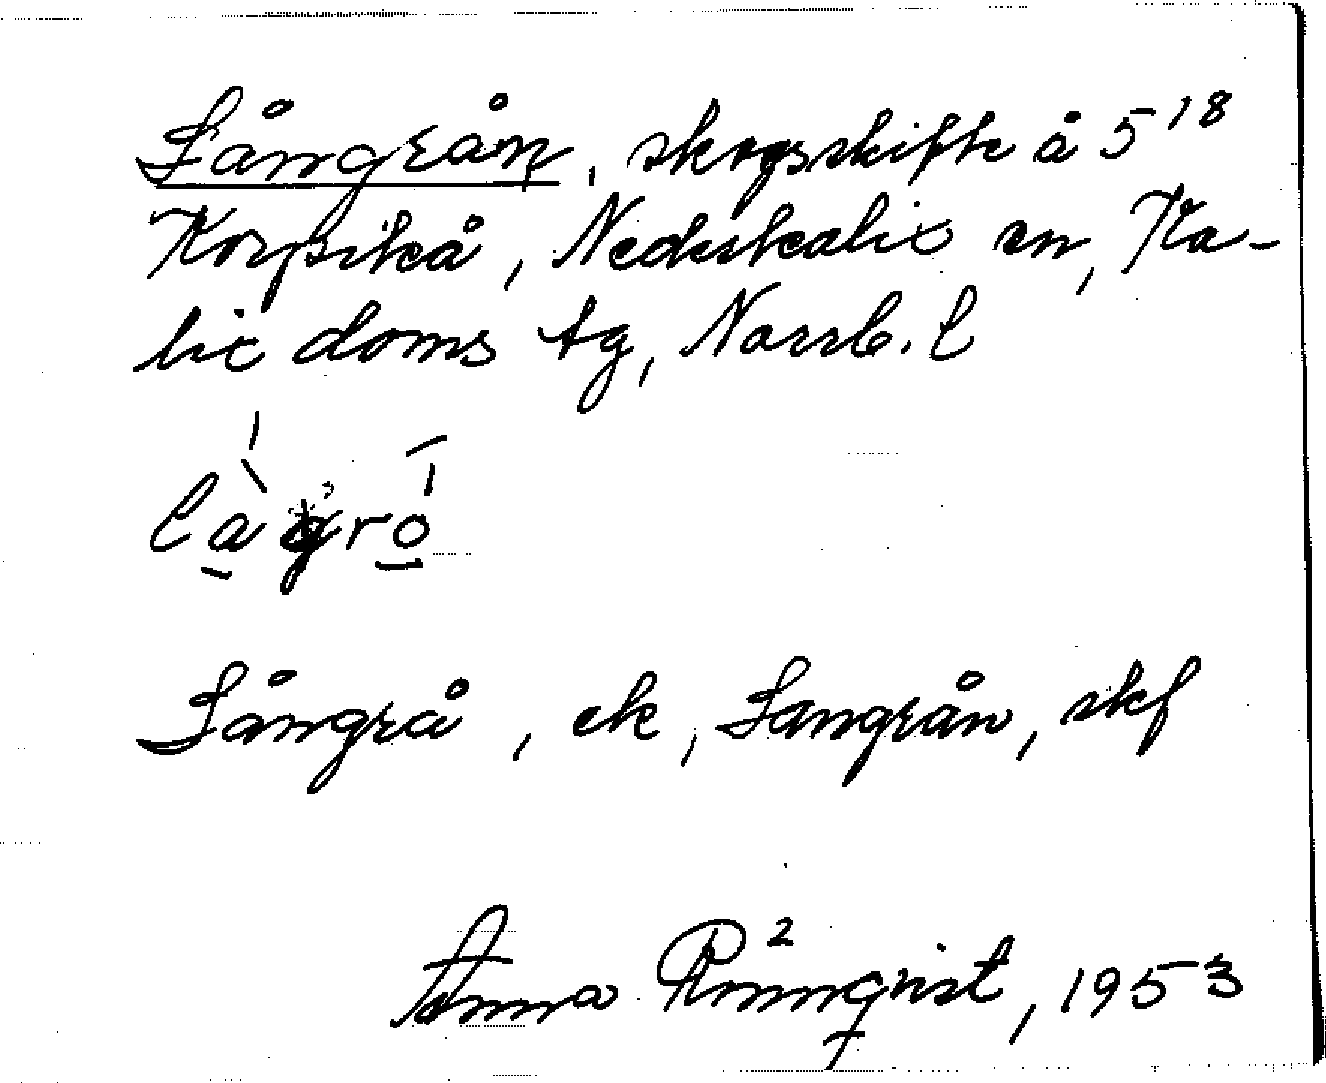 Långrån, skogsskifte å 5¹⁸
Korpikå, Nederkalix sn, Ka-
lix doms tg, Norrb. l
Långrå, ek, Långrån, skf
Anna Rönnqvist², 1953